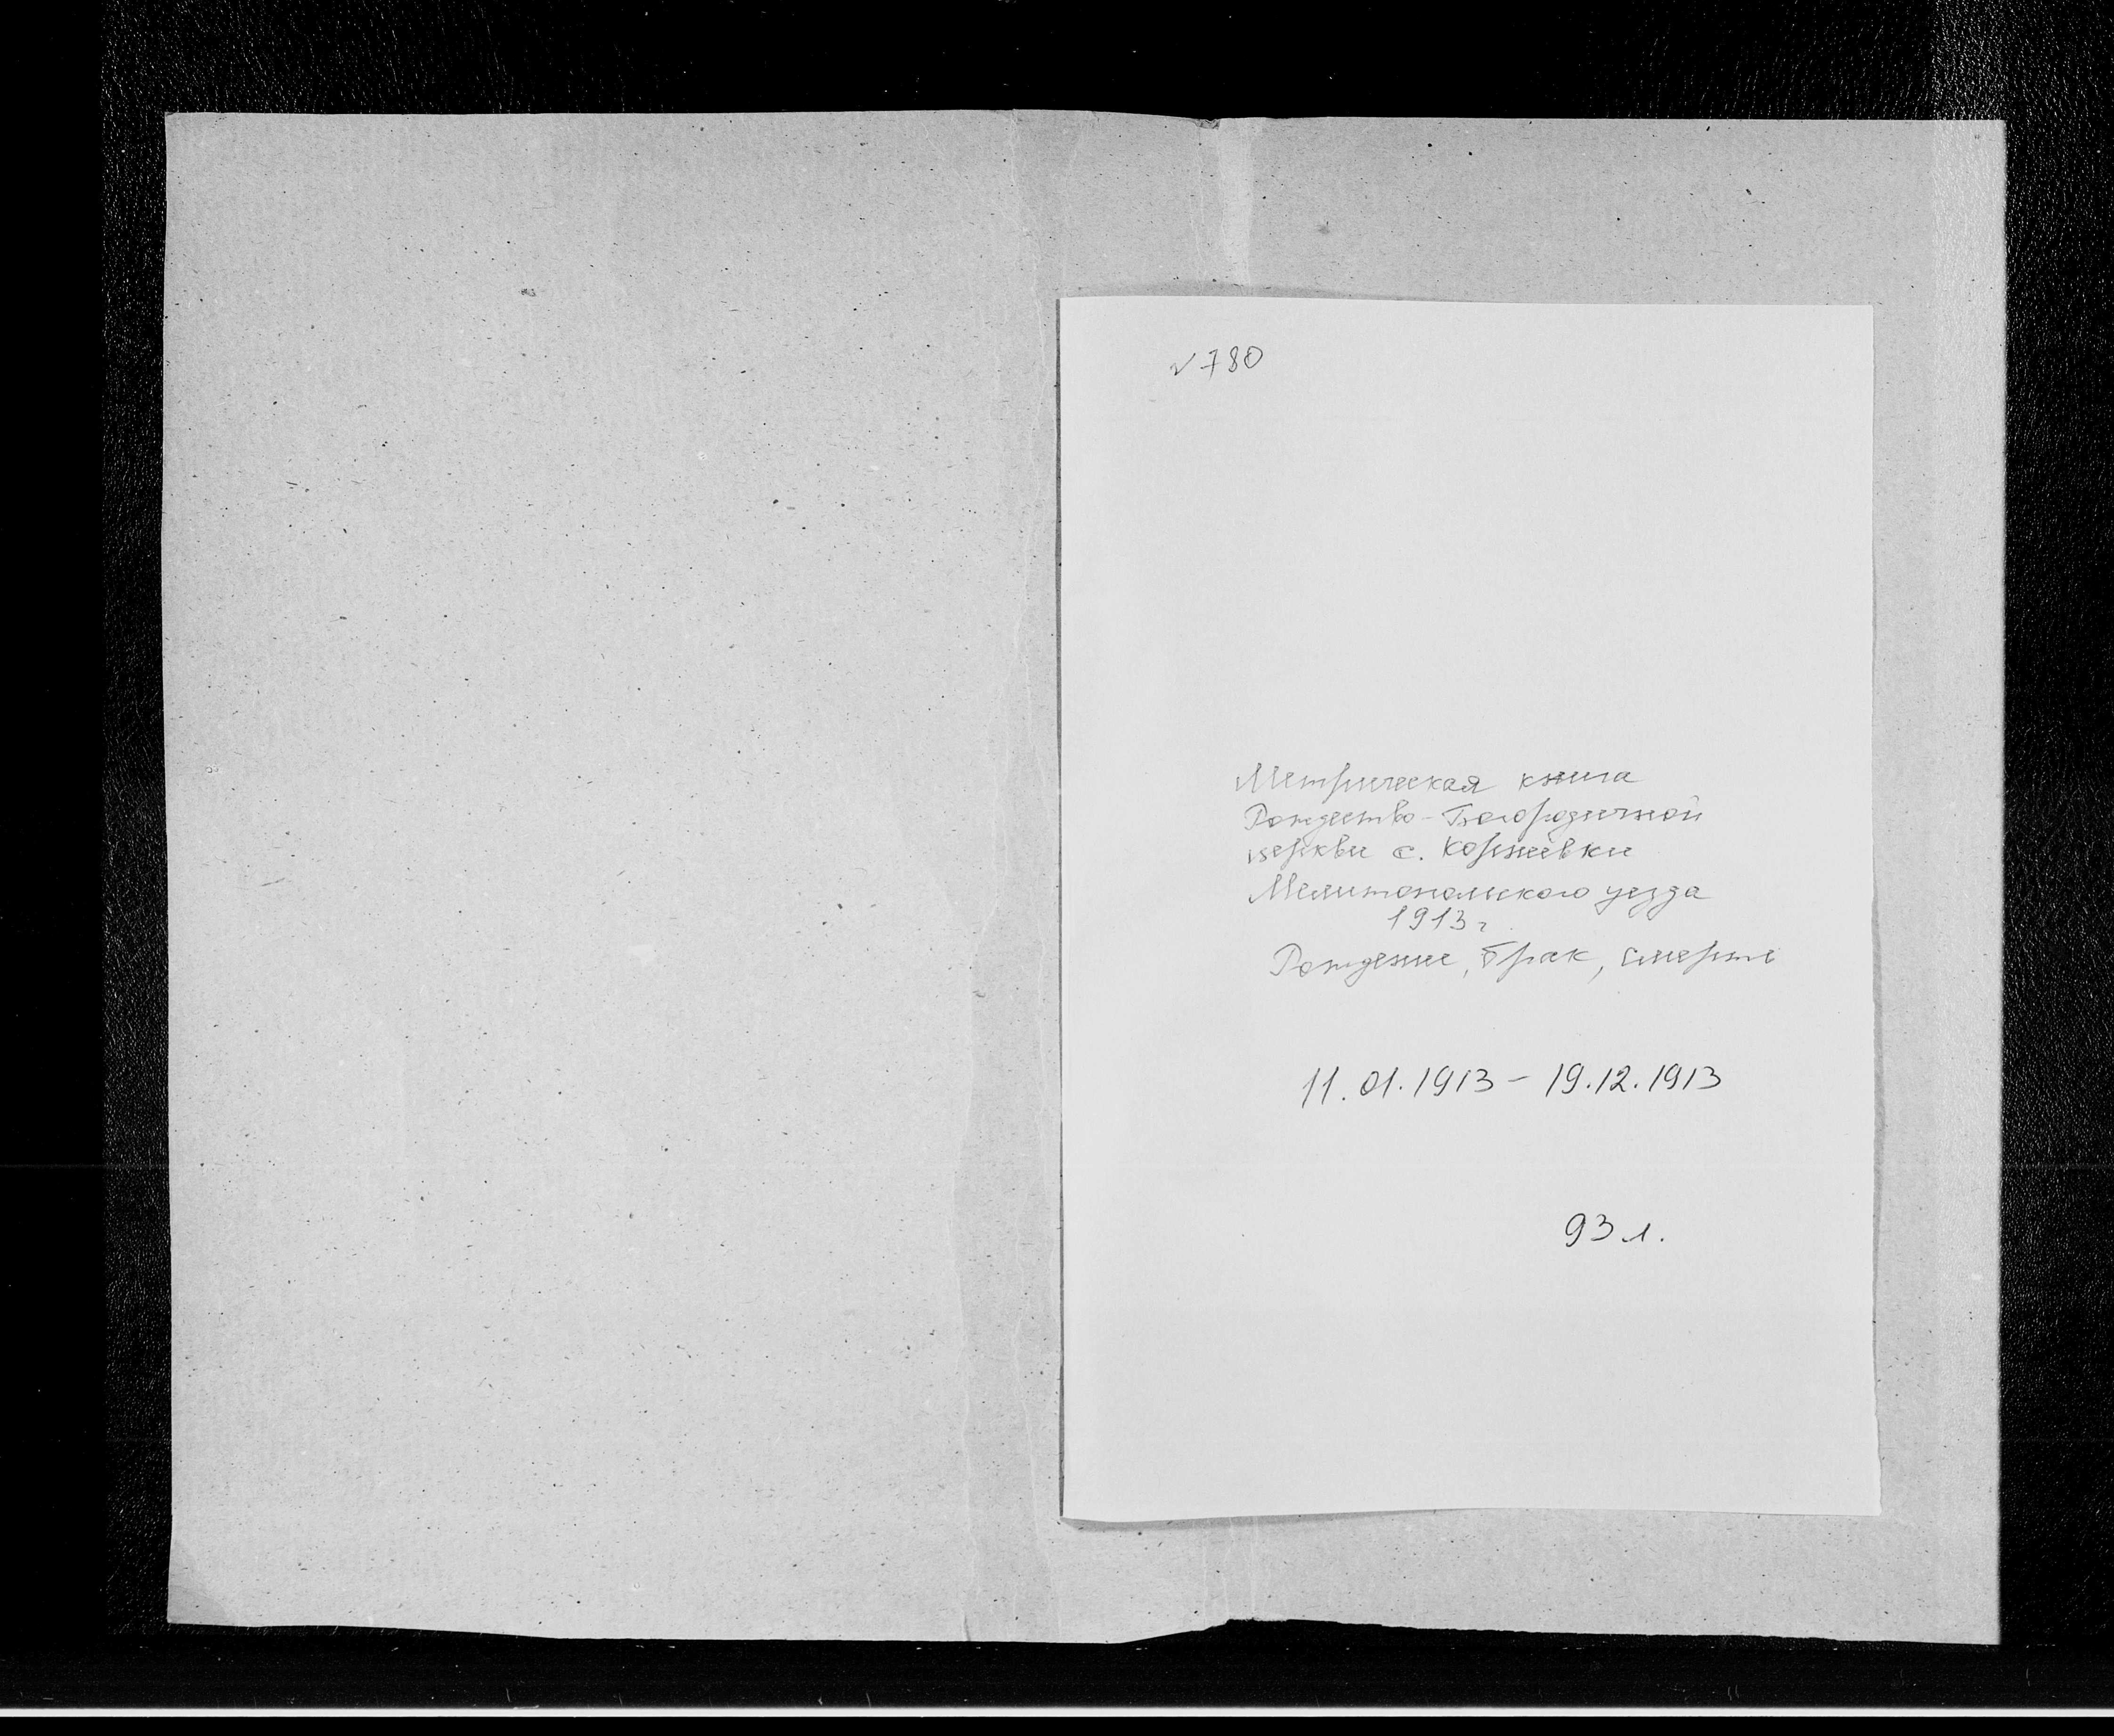 √ 780
Метрическая книга
Рождество-Богородичной
церкви с. Корнеевки
Мелитопольского уезда
1913 г
Рождение, брак, смерть
11.01.1913 – 19.12.1913
93 л.